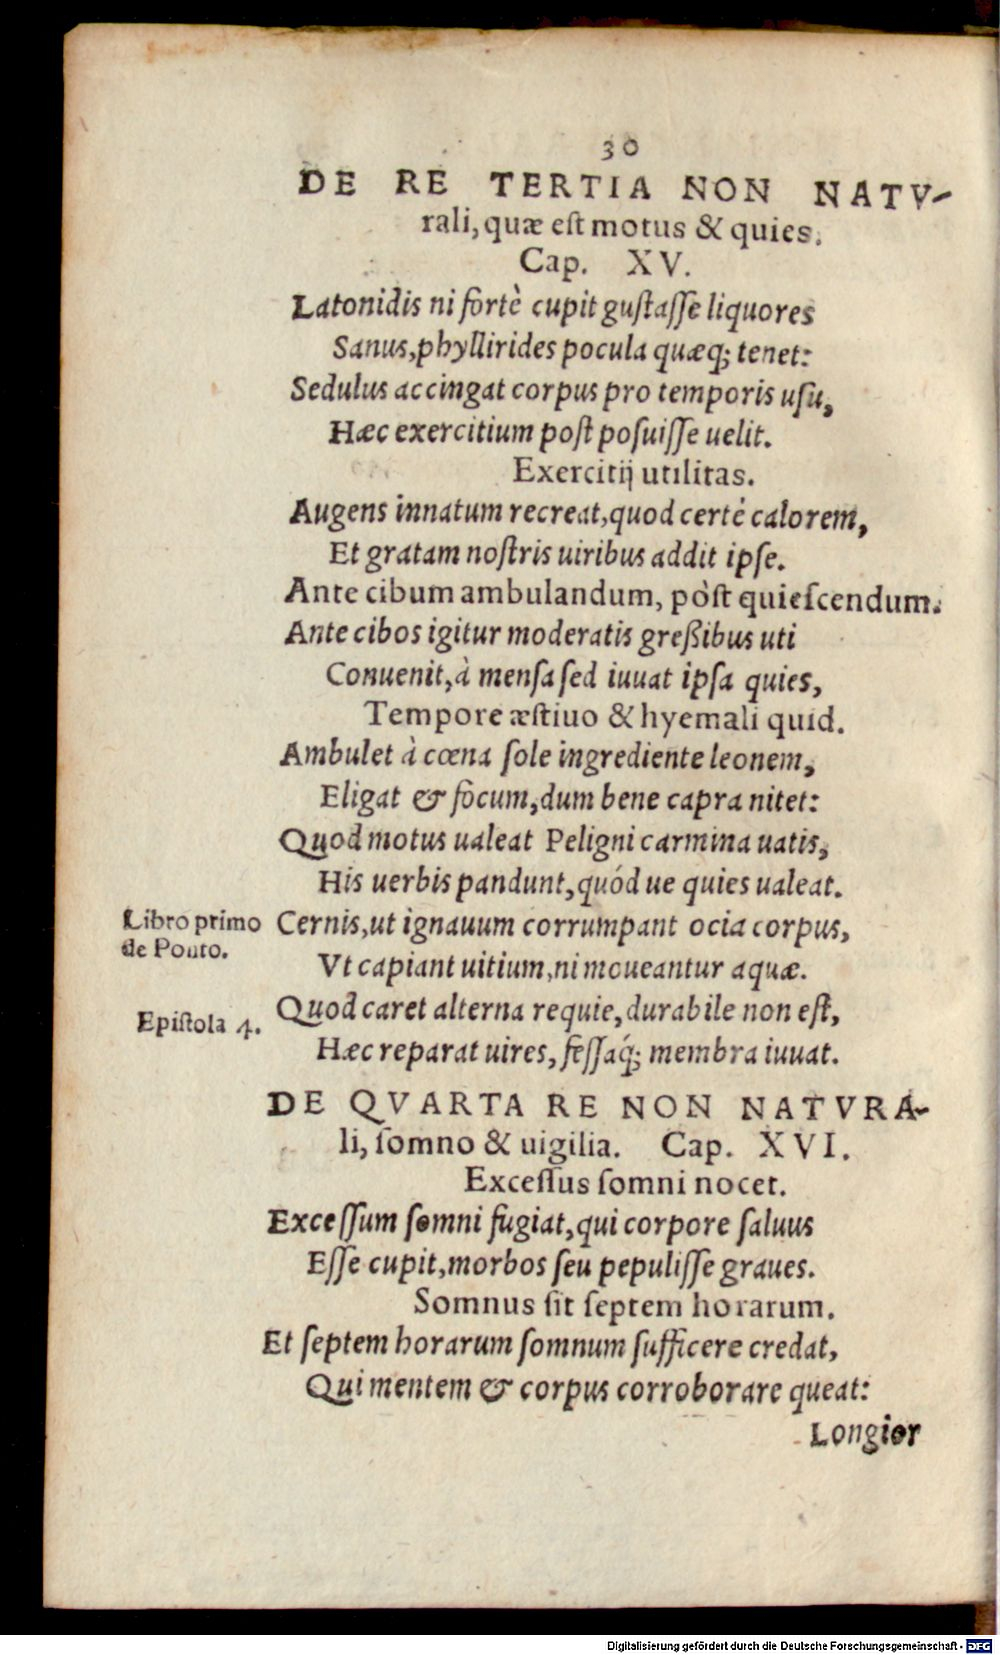 30
DE RE TERTIA NON NATV-
rali, quæ est motus & quies.
Cap. XV.
Latonidis ni fortè cupit gustasse liquores
Sanus, phyllirides pocula quæq; tenet:
Sedulus accingat corpus pro temporis usu,
Hæc exercitium post posuisse uelit.
Exercitij utilitas.
Augens innatum recreat, quod certè calorem,
Et gratam nostris uiribus addit ipse.
Ante cibum ambulandum, pòst quiescendum.
Ante cibos igitur moderatis greßibus uti
Conuenit, à mensa sed iuuat ipsa quies,
Tempore æstiuo & hyemali quid.
Ambulet à cœna sole ingrediente leonem,
Eligat & focum, dum bene capra nitet:
Quod motus ualeat Peligni carmina uatis,
His uerbis pandunt, quód ue quies ualeat.
Libro primo
de Ponto.
Cernis, ut ignauum corrumpant ocia corpus,
Vt capiant uitium, ni moueantur aquæ.
Epistola 4.
Quod caret alterna requie, durabile non est,
Hæc reparat uires, fessaq́; membra iuuat.
DE QVARTA RE NON NATVRA-
li, somno & uigilia. Cap. XVI.
Excessus somni nocet.
Excessum somni fugiat, qui corpore saluus
Esse cupit, morbos seu pepulisse graues.
Somnus sit septem horarum.
Et septem horarum somnum sufficere credat,
Qui mentem & corpus corroborare queat:
Longior
Digitalisierung gefördert durch die Deutsche Forschungsgemeinschaft - DFG